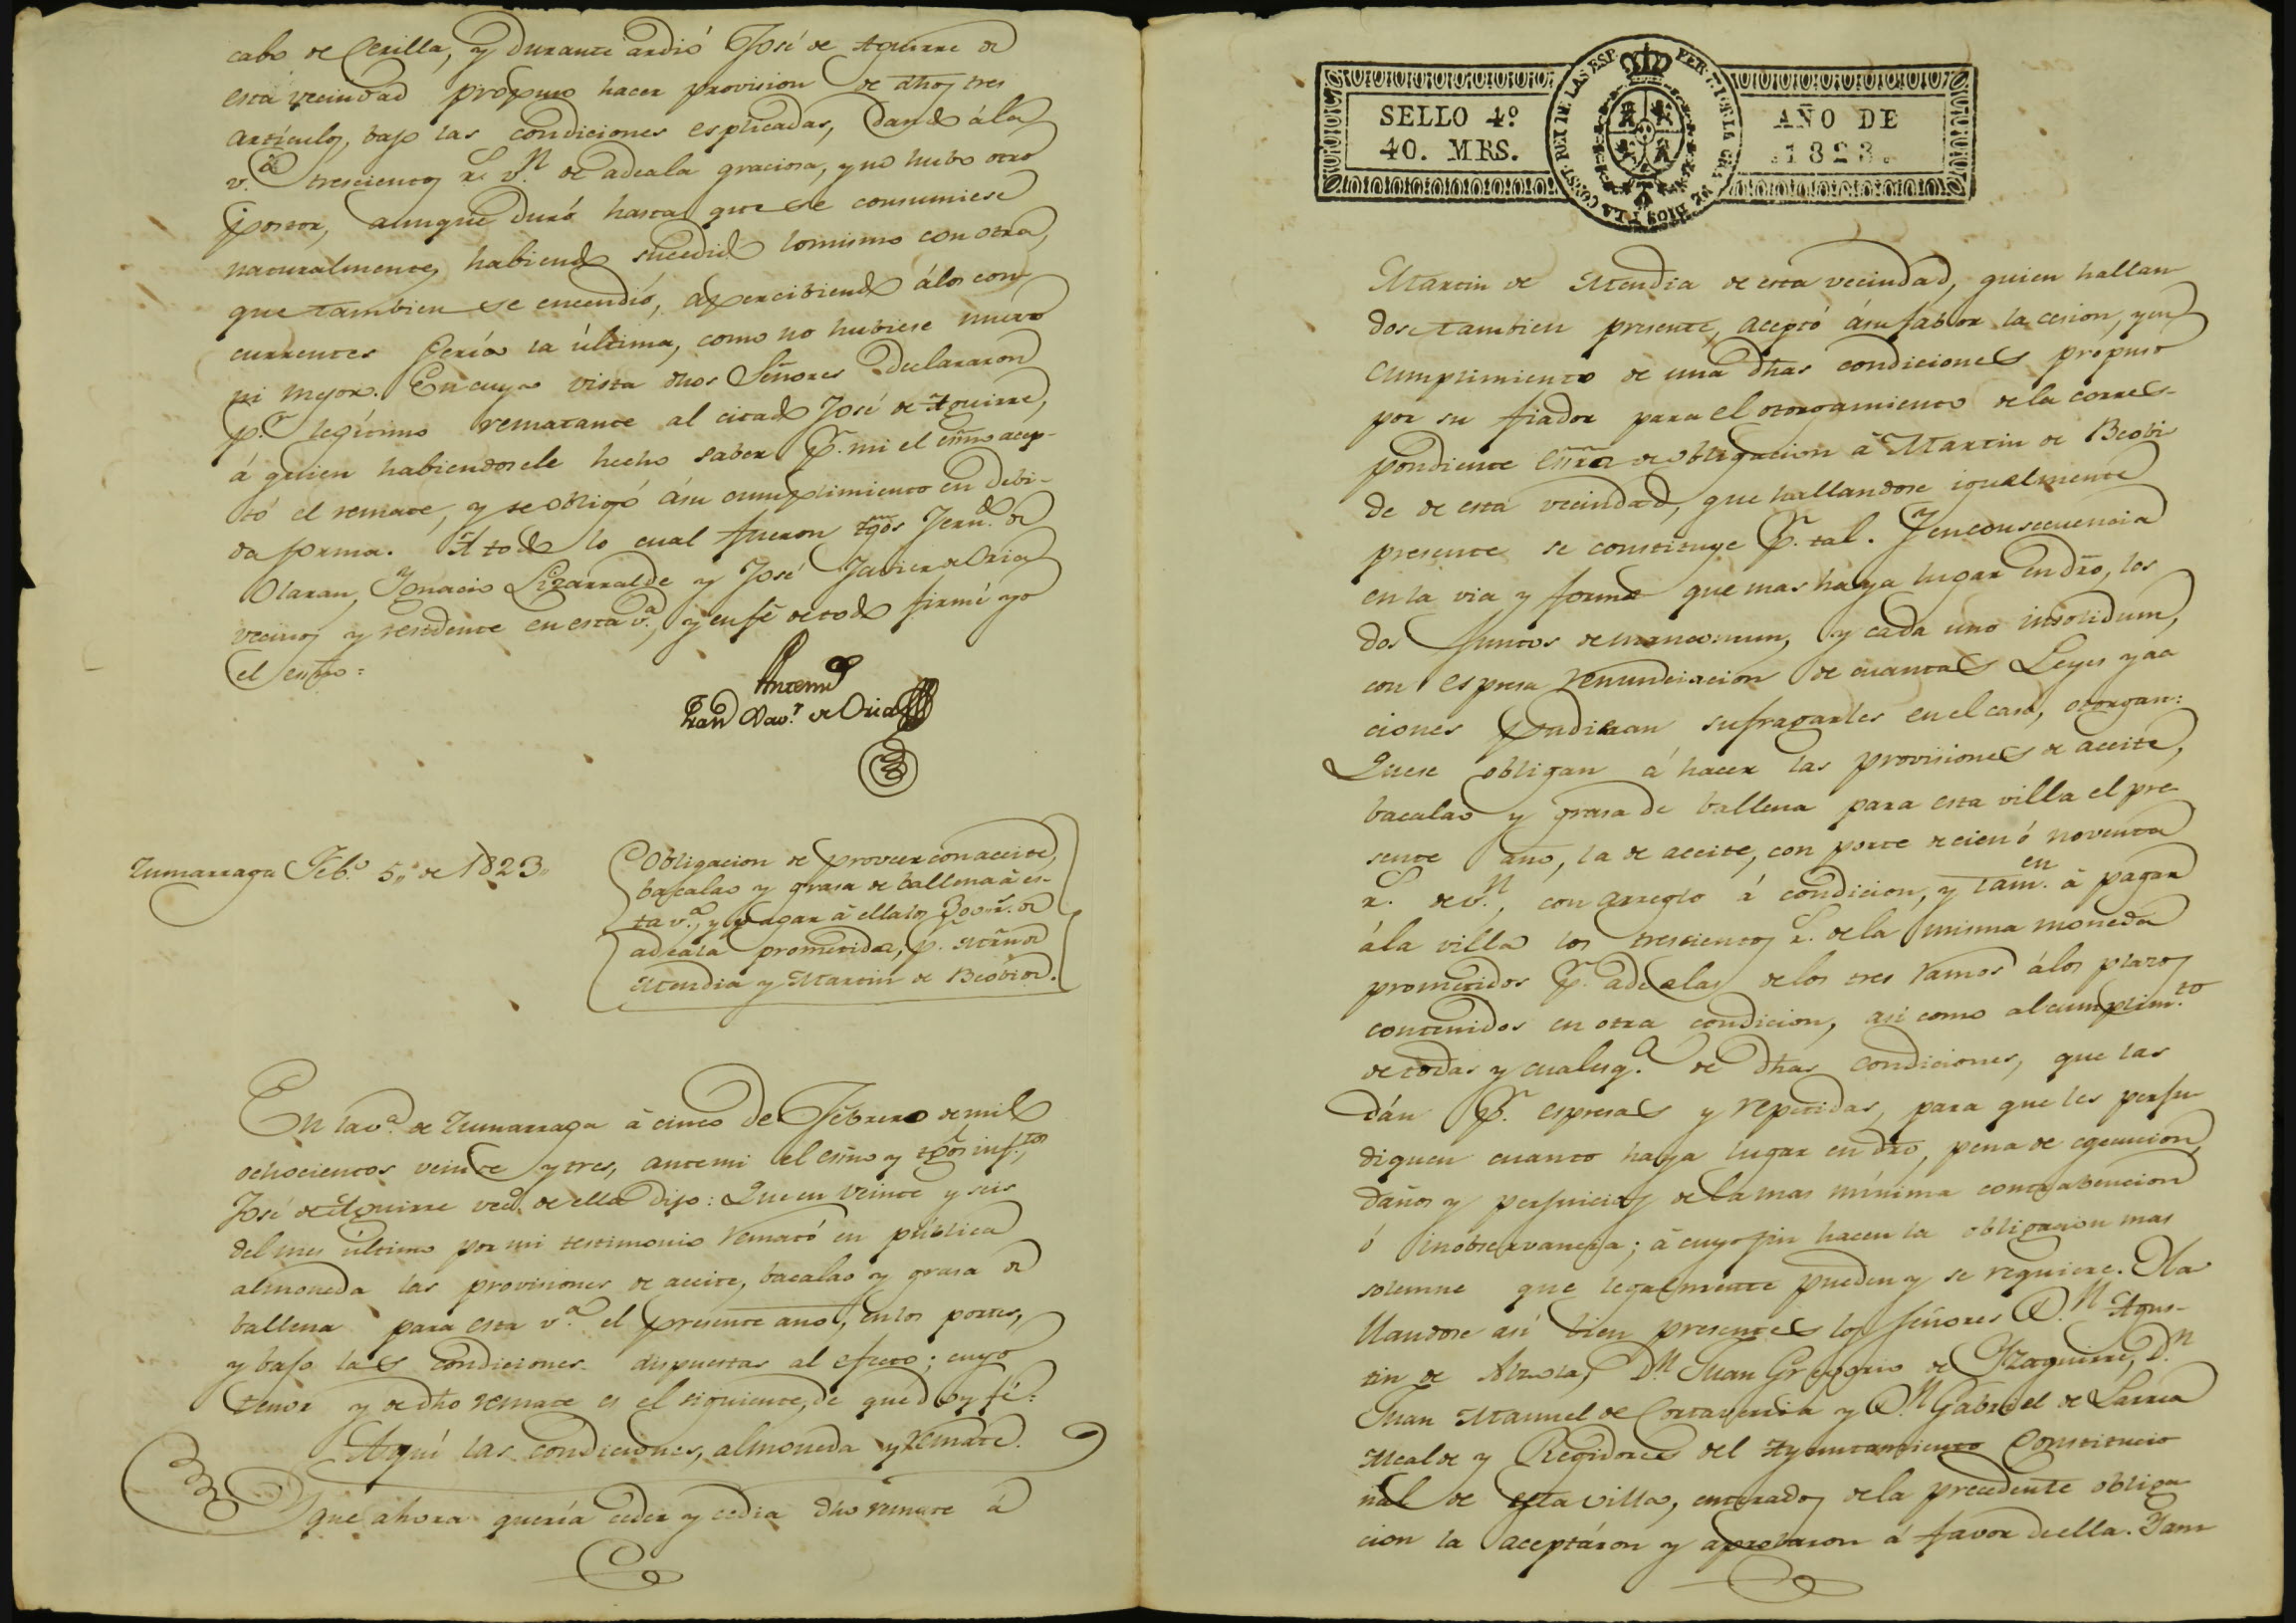 cabo de Cerilla, y durante ardió José de Aguirre de
esta vecindad propuso hacer provision de dhos tres
artículos, bajo las condiciones esplicadas, dando á la
v.ª trescientos r.s v.n de adeala graciosa, y no hubo otro
postor, aunque duró hasta que se consumiese
naturalmente, habiendo sucedido lo mismo con otra,
que tambien se encendió, apercibiendo á los con-
currentes sería la última, como no hubiese nuevo
ni mejor. En cuya vista dhos Señores declararon
p.r legítimo rematante al citado José de Aguirre,
á quien habiendosele hecho saber p.r mi el essno acep-
tó el remate, y se obligó á su cumplimiento en debi-
da forma. A todo lo cual fueron tgos Fern.do de
Olaran, Ignacio Lizarralde y José Javier de Oria
vecinos y residente en esta v.ª, y en fé de todo firmé yo
el essno:
Antemi
Fran.co Xav.r de Oria
Zumarraga Feb.o 5,, de 1823,,
Obligacion de proveer con aceite,
bacalao y grasa de ballena á es-
ta v.ª, y pagar á ella los 300 r.s de
adeala prometidos, p.r Mrn de
Mendia y Martin de Beovide.
En la v.ª de Zumarraga á cinco de Febrero de mil
ochocientos veinte y tres, ante mi el essno y tgos inf.tos
José de Aguirre vec.o de ella dijo: Que en veinte y seis
del mes último por mi testimonio remató en pública
almoneda las provisiones de aceite, bacalao y grasa de
ballena para esta v.ª el presente año, en los portes,
y bajo las condiciones dispuestas al efecto; cuyo
tenor y de dho remate es el siguiente, de que doy fé:
Aquí las condiciones, almoneda y remate.
Y que ahora quería ceder y cedia dho remate á
SELLO 4º
40. MRS.
AÑO DE
1823.
FER. 7.º P. LA GRA. DE DIOS Y LA CONST. REI DE LAS ESP.
Martin de Mendia de esta vecindad, quien hallan-
dose tambien presente, aceptó á su fabor la cesion, y en
cumplimiento de una dhas condiciones propuso
por su fiador para el otorgamiento de la corres-
pondiente essra de obligacion á Martin de Beobi
de de esta vecindad, que hallandose igualmente
presente se constituye p.r tal. Y en consecuencia
en la via y forma que mas haya lugar en dro, los
dos juntos de mancomun, y cada uno insolidum,
con espresa renunciacion de cuantas Leyes y ac
ciones pudieran sufragarles en el caso, otorgan:
Que se obligan á hacer las provisiones de aceite,
bacalao y grasa de ballena para esta villa el pre
sente año, la de aceite, con porte de cien ó noventa
r.s de v.n, con arreglo á condicion, y tam.en á pagar
á la villa los trescientos r.s de la misma moneda
prometidos p.r adealas de los tres ramos á los plazos
contenidos en otra condicion, asi como al cumplim.to
de todas y cualesq.a de dhas condiciones, que las
dán p.r espresas y repetidas, para que les perju
diquen cuanto haya lugar en dro, pena de egecucion,
daños y perjuicios de la mas mínima contrabencion
ó inobservancia; á cuyo fin hacen la obligacion mas
solemne que legalmente pueden y se requiere. Ha
llandose asi bien presentes los Señores D.n Agus-
tin de Alzola, D.n Juan Gregorio de Yzaguirre, D.n
Juan Manuel de Cortaverria y D.n Gabriel de Larrea
Alcalde y Regidores del Ayuntamiento Constitucio
nal de esta villa, enterados de la precedente obliga
cion la aceptáron y aprobaron á favor de ella. Tam